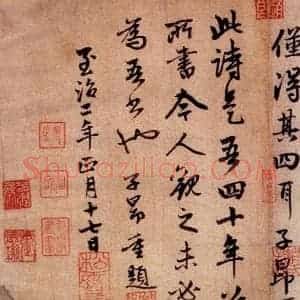 僅得其四耳 子昂
此詩是吾四十年前
所書今人觀之未必
為吾書也 子昂重題
至治二年正月十七日